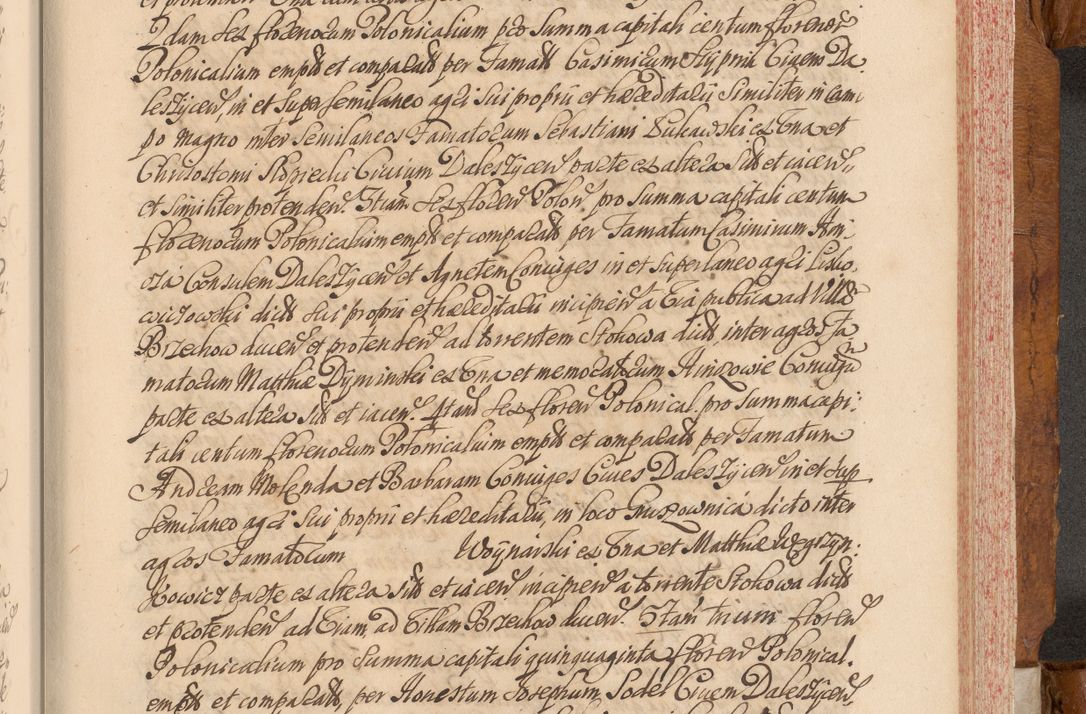 2dam sex florenorum Polonicalium pro summa capitali centum florenor
Polonicalium empt et comparat per Famat Casimirum Stypnii Civem Da
leszycen, in et super semilaneo agri sui proprii et haereditarii similiter in Cam
po magno inter semilaneos Famatorum Sebastiani Lukawski ex una et
Chrisostomi Civium Daleszycen parte ex altera sit et iacen
et similiter protenden. Item sex floren Polon pro summa capitali centum
florenorum Polonicalium empt et comparat per Famatum Casimirum
Consulem Daleszycen et Agnetem Coniuges in et super laneo agri
dict sui proprii et haereditarii incipien a via publica ad Vill
Brzechow ducen et protenden ad torrentem Stokowa dict inter agros Fa
matorum Matthiae Dyminski ex una et memoratorum Coniugu
parte ex altera sit et iacen. Item sex floren Polonical. pro summa capi
tali centum florenorum Polonicalium empt et comparat per Famatum
Andream Molenda et Barbaram Coniuges Cives Daleszycen in et sup
semilaneo agri sui proprii et haereditarii, in loco dicto inter
agros Famatorum Woynarski ex una et Matthiae Wegrzyn
kowicz parte ex altera sit et iacen incipien a torrente Stokowa dict
et protenden ad viam ad Villam Brzechow ducen. Item trium floren
Polonicalium pro summa capitali quinquaginta floren Polonical.
empt et comparat, per Honestum Josephum Sodel Civem Daleszycen